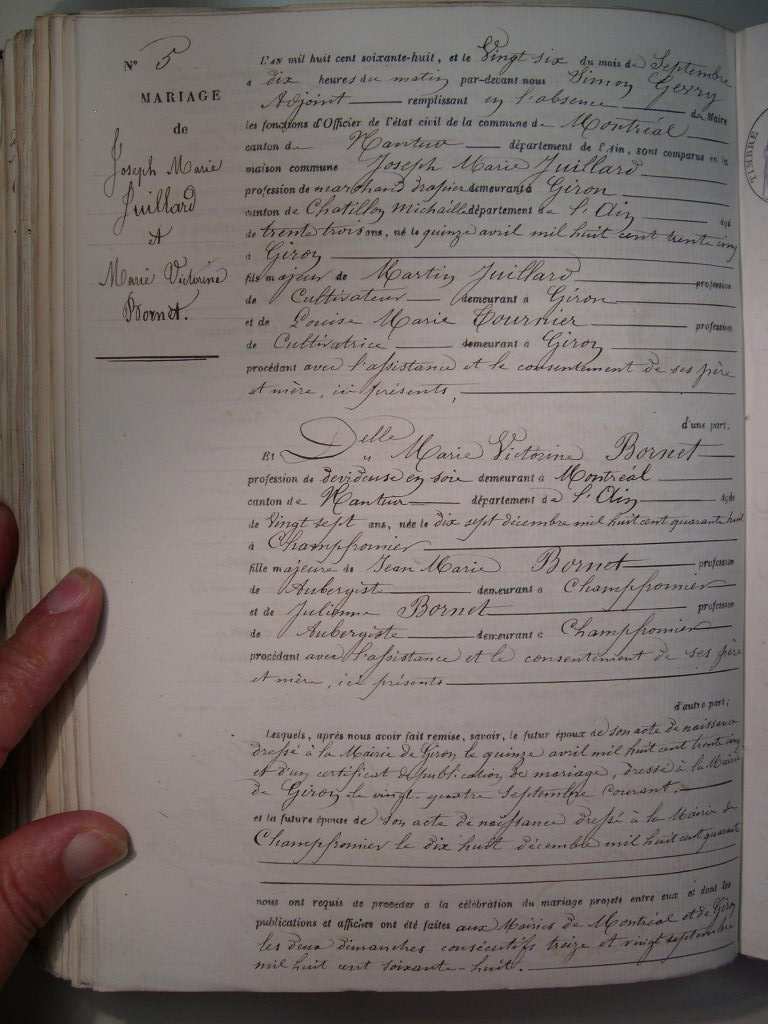 N° 5
MARIAGE
de
Joseph Marie
Juillard
et
Marie Victorine
Bornet.
L'an mil huit cent soixante-huit, et le Vingt six du mois de Septembre
à dix heures du matin par-devant nous Simon Gerry
Adjoint remplissant en l'absence du Maire
les fonctions d'Officier de l'état civil de la commune de Montréal
canton de Nantua département de l'Ain, sont comparus en la
maison commune Joseph Marie Juillard
profession de marchand drapier demeurant à Giron
canton de Chatillon Michaille département de l'Ain âgé
de trente trois ans, né le quinze avril mil huit cent trente cinq
à Giron
fils majeur de Martin Juillard profession
de Cultivateur demeurant à Giron
et de Louise Marie Tournier profession
de Cultivatrice demeurant à Giron
procédant avec l'assistance et le consentement de ses père
et mère, ici présents,
d'une part;
Et Delle Marie Victorine Bornet
profession de devideuse en soie demeurant à Montréal
canton de Nantua département de l'Ain âgée
de Vingt sept ans, née le dix sept décembre mil huit cent quarante huit
à Champfromier
fille majeure de Jean Marie Bornet profession
de Aubergiste demeurant à Champfromier
et de Julienne Bornet profession
de Aubergiste demeurant à Champfromier
procédant avec l'assistance et le consentement de ses père
et mère, ici présents
d'autre part;
Lesquels, après nous avoir fait remise, savoir, le futur époux de son acte de naissance
dressé à la Mairie de Giron le quinze avril mil huit cent trente cinq
et d'un certificat de publication de mariage, dressé à la Mairie
de Giron le vingt-quatre Septembre courant.
et la future épouse de son acte de naissance dressé à la Mairie de
Champfromier le dix huit décembre mil huit cent quarante
nous ont requis de procéder à la célébration du mariage projeté entre eux et dont les
publications et affiches ont été faites aux Mairies de Montréal et de Giron
les deux dimanches consécutifs treize et vingt septembre
mil huit cent soixante-huit.
TIMBRE